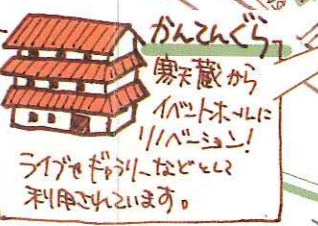 かんてんぐら
寒天蔵から
イベントホールに
リノベーション!
ライブやぎゃらりーなどとして
利用されています。